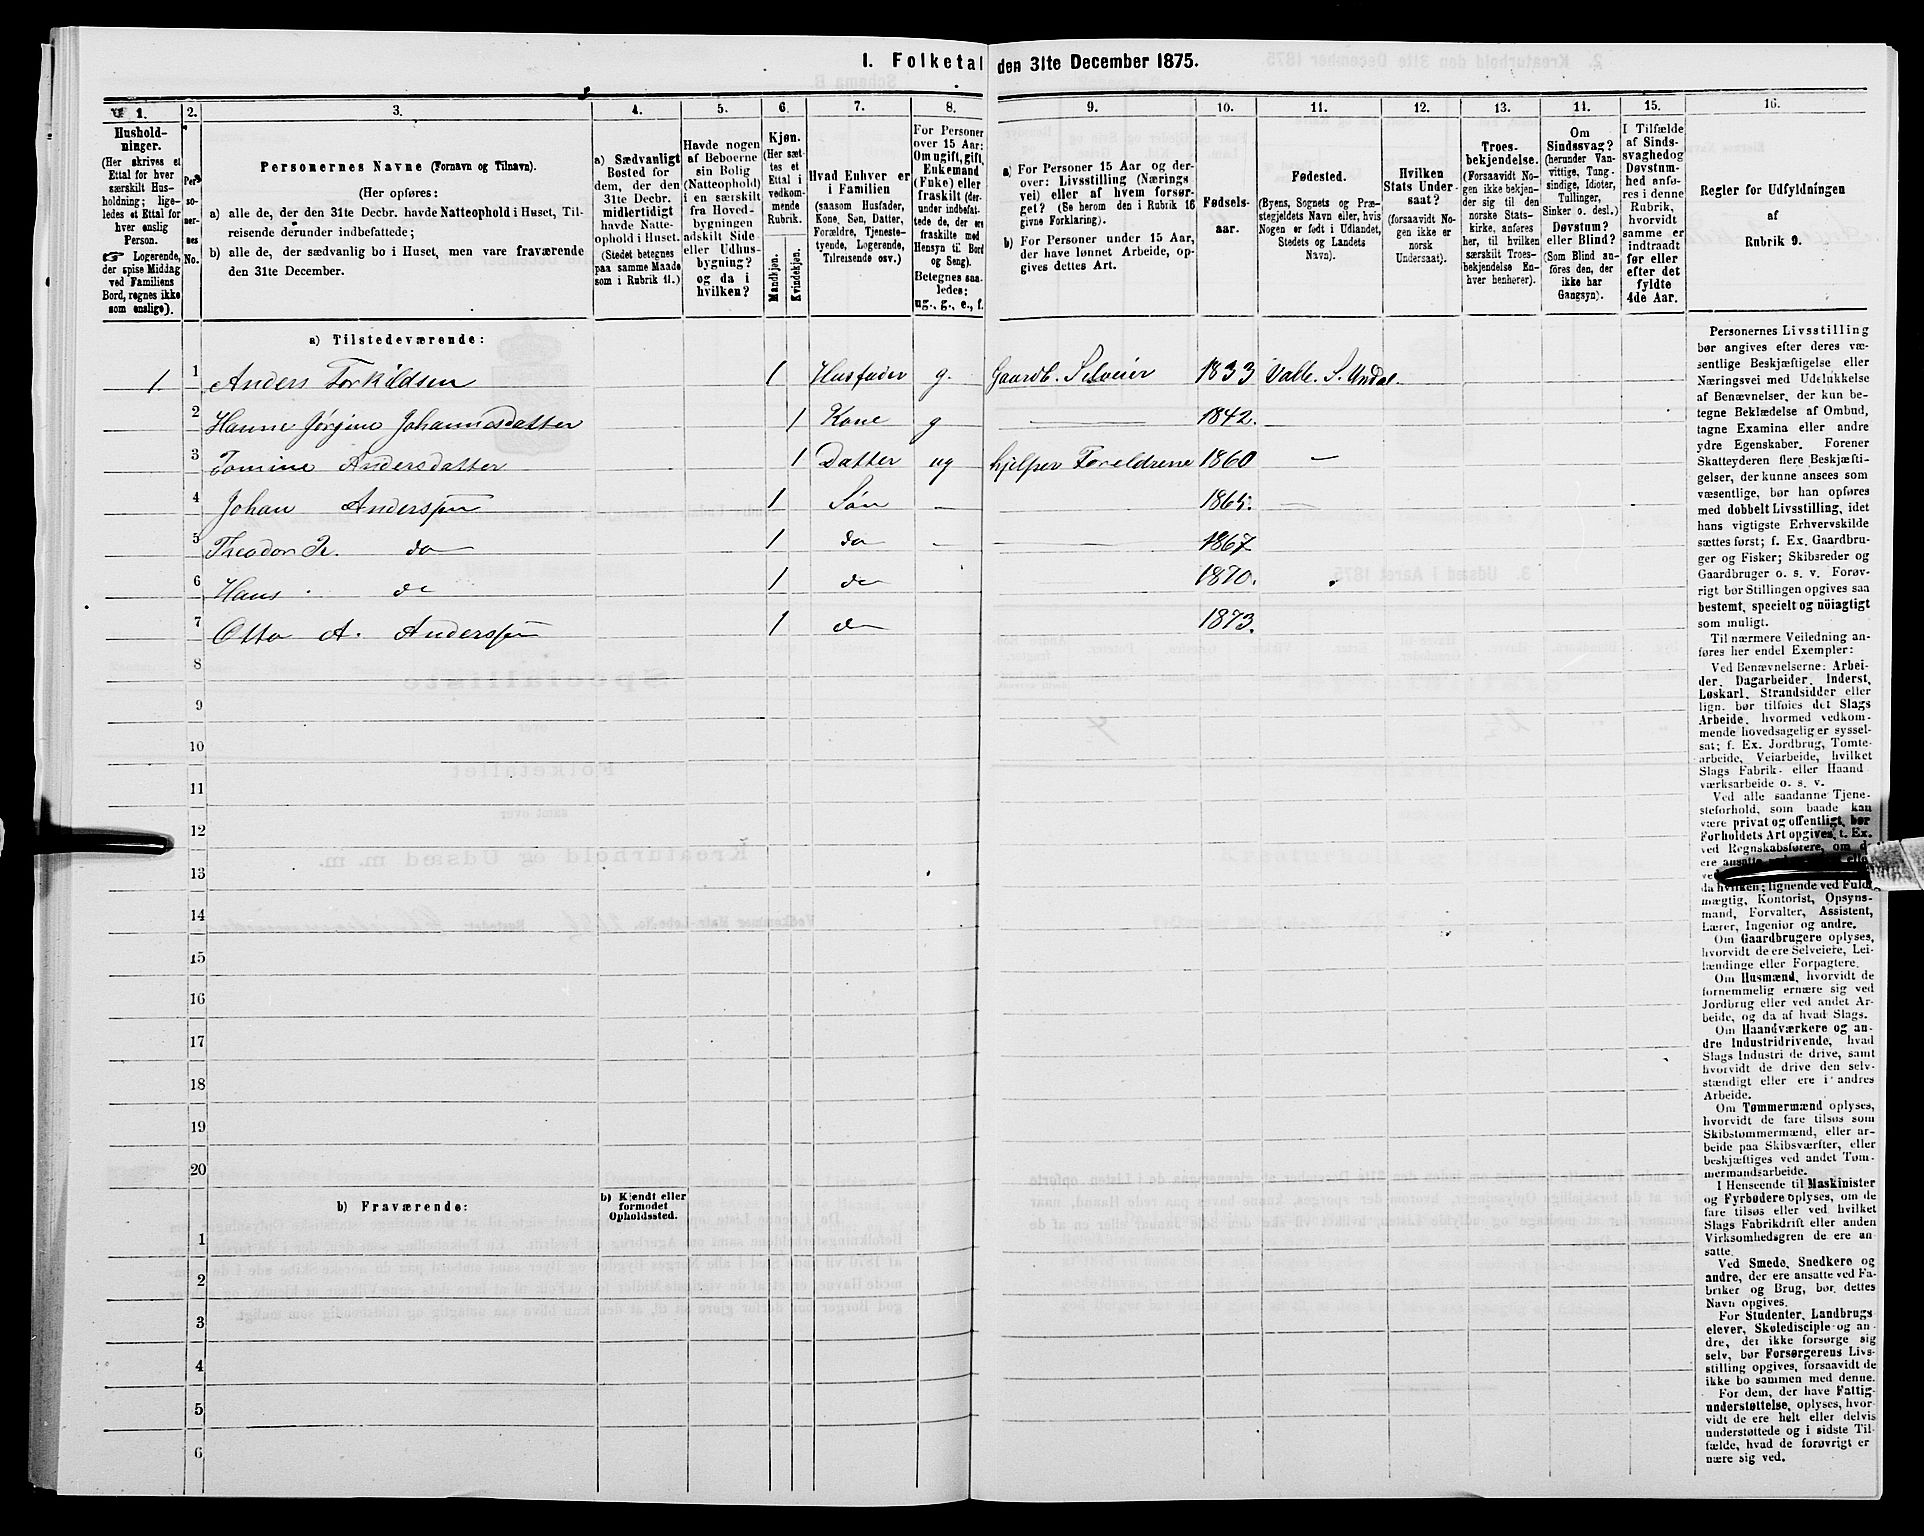 I. Folketal den 31te December 1875.
1. 2. 3. 4. 5. 6. 7. 8. 9. 10. 11. 12. 13. 11. 15. 16.
Hushold-
ninger.
(Her skrives et
Ettal for hver
særskilt Hus-
holdning; lige-
ledes et Ettal for
hver enslig
Person.
☞ Logerende,
der spise Middag
ved Familiens
Bord, regnes ikke
som enslige).
Per-
so-
ner-
nes
No.
Personernes Navne (Fornavn og Tilnavn).
(Her opføres:
a) alle de, der den 31te Decbr. havde Natteophold i Huset, Til-
reisende derunder indbefattede;
b) alle de, der sædvanlig bo i Huset, men vare fraværende
den 31te December.
a) Sædvanligt
Bosted for
dem, der den
31te Decbr.
midlertidigt
havde Natte-
ophold i Huset.
(Stedet betegnes
paa samme Maade
som i Rubrik 11.)
Havde nogen
af Beboerne
sin Bolig
(Natteophold)
i en særskilt
fra Hoved-
bygningen
adskilt Side-
eller Udhus-
bygning?
og da i
hvilken?
Kjøn.
(Her sæt-
tes et
Ettal i
vedkom-
mende
Rubrik.
Mandkjøn.
Kvindekjøn.
Hvad Enhver er
i Familien
(saasom Husfader,
Kone, Søn, Datter,
Forældre, Tjeneste-
tyende, Logerende,
Tilreisende osv.)
For Personer
over 15 Aar:
Om ugift, gift,
Enkemand
(Enke) eller
fraskilt (der-
under indbefat-
tede de, der ere
fraskilte med
Hensyn til Bord
og Seng).
Betegnes saa-
ledes:
ug., g., e., f.
a) For Personer 15 Aar og der-
over: Livsstilling (Nærings-
vei) eller af hvem forsør-
get? (Se herom den i Rubrik 16
givne Forklaring).
b) For Personer under 15 Aar,
der have lønnet Arbeide, op-
gives dettes Art.
Fødsels-
aar.
Fødested.
(Byens, Sognets og Præ-
stegjeldets Navn eller, hvis
Nogen er født i Udlandet,
Stedets og Landets
Navn).
Hvilken
Stats Under-
saat?
(forsaavidt No-
gen ikke er
norsk
Undersaat).
Troes-
bekjendelse.
(Forsaavidt No-
gen ikke bekjen-
der sig til den
norske Stats-
kirke, anføres
her, til hvilken
særskilt Troes-
bekjendelse En-
hver henhører).
Om
Sindssvag?
(herunder Van-
vittige, Tung-
sindige, Idioter,
Tullinger,
Sinker o. desl.)
Døvstum?
eller Blind?
(Som Blind an-
føres den, der
ikke har
Gangsyn).
I Tilfælde
af Sinds-
svaghed og
Døvstum-
hed anfø-
res i denne
Rubrik,
hvorvidt
samme er
indtraadt
før eller
efter det
fyldte
4de Aar.
Regler for Udfyldningen
af
Rubrik 9.
a) Tilstedeværende:
1 1 Anders Torkildsen 1 Husfader g. Gaardb. Selveier 1833 Valle. S. Undal.
2 Hanne Jørgine Johannesdatter 1 Kone g — 1842. —
3 Tomine Andersdatter 1 Datter ug hjelper Foreldrene 1860 —
4 Johan Anderssen 1 Søn — — 1865. —
5 Theodor do 1 do — — 1867
6 Hans do 1 do — 1870.
7 Otto A. Anderssen 1 do — 1873.
8
9
10
11
12
13
14
15
16
17
18
19
20
b) Fraværende:
b) Kjendt eller
formodet
Opholdssted.
1
2
3
4
5
6
Personernes Livsstilling
bør angives efter deres væ-
sentlige Beskjæftigelse eller
Næringsvei med Udelukkelse
af Benævnelser, der kun be-
tegne Beklædelse af Ombud,
tagne Examina eller andre
ydre Egenskaber. Forener
Skatteyderen flere Beskjæfti-
gelser, der kunne ansees som
væsentlige, bør han opføres
med dobbelt Livsstilling, idet
hans vigtigste Erhvervskilde
sættes først; f. Ex. Gaardbru-
ger og Fisker; Skibsreder og
Gaardbruger o. s. v. Forøv-
rigt bør Stillingen opgives saa
bestemt, specielt og nøiagtigt
som muligt.
Til nærmere Veiledning an-
føres her endel Exempler:
Ved Benævnelserne: Arbei-
der, Dagarbeider, Inderst,
Løskarl, Strandsidder eller
lign. bør tilføies det Slags
Arbeide, hvormed vedkom-
mende hovedsagelig er syssel-
sat; f. Ex. Jordbrug, Tomte-
arbeide, Veiarbeide, hvilket
Slags Fabrik- eller Haand-
værksarbeide o. s. v.
Ved alle saadanne Tjene-
steforhold, som baade kan
være privat og offentligt, bør
Forholdets Art opgives, t. Ex.
ved Regnskabsførere, om de
ere ansatte
da hvilken; lignende ved Fuld-
mægtig, Kontorist, Opsyns-
mand, Forvalter, Assistent,
Lærer, Ingeniør og andre.
Om Gaardbrugere oplyses,
hvorvidt de ere Selveiere, Lei-
lændinge eller Forpagtere.
Om Husmænd, hvorvidt de
fornemmelig ernære sig ved
Jordbrug eller ved andet Ar-
beide, og da af hvad Slags.
Om Haandværkere og an-
dre Industridrivende, hvad
Slags Industri de drive, samt
hvorvidt de drive den selv-
stændigt eller ere i andres
Arbeide.
Om Tømmermænd oplyses,
hvorvidt de fare tilsøs som
Skibstømmermænd, eller ar-
beide paa Skibsværfter, eller
beskjæftiges ved andet Tøm-
mermandsarbeide.
I Henseende til Maskinister
og Fyrbødere oplyses, om de
fare tilsøs eller ved hvilket
Slags Fabrikdrift eller anden
Virksomhedsgren de ere an-
satte.
Ved Smede, Snedkere og
andre, der ere ansatte ved Fa-
briker og Brug, bør dettes
Navn opgives.
For Studenter, Landbrugs-
elever, Skoledisciple og an-
dre, der ikke forsørge sig
selv, bør Forsørgerens Livs-
stilling opgives, forsaavidt de
ikke bo sammen med denne.
For dem, der have Fattig-
understøttelse, oplyses, hvor-
vidt de ere helt eller delvis
understøttede og i sidste Til-
fælde, hvad de forøvrigt er-
nære sig ved.